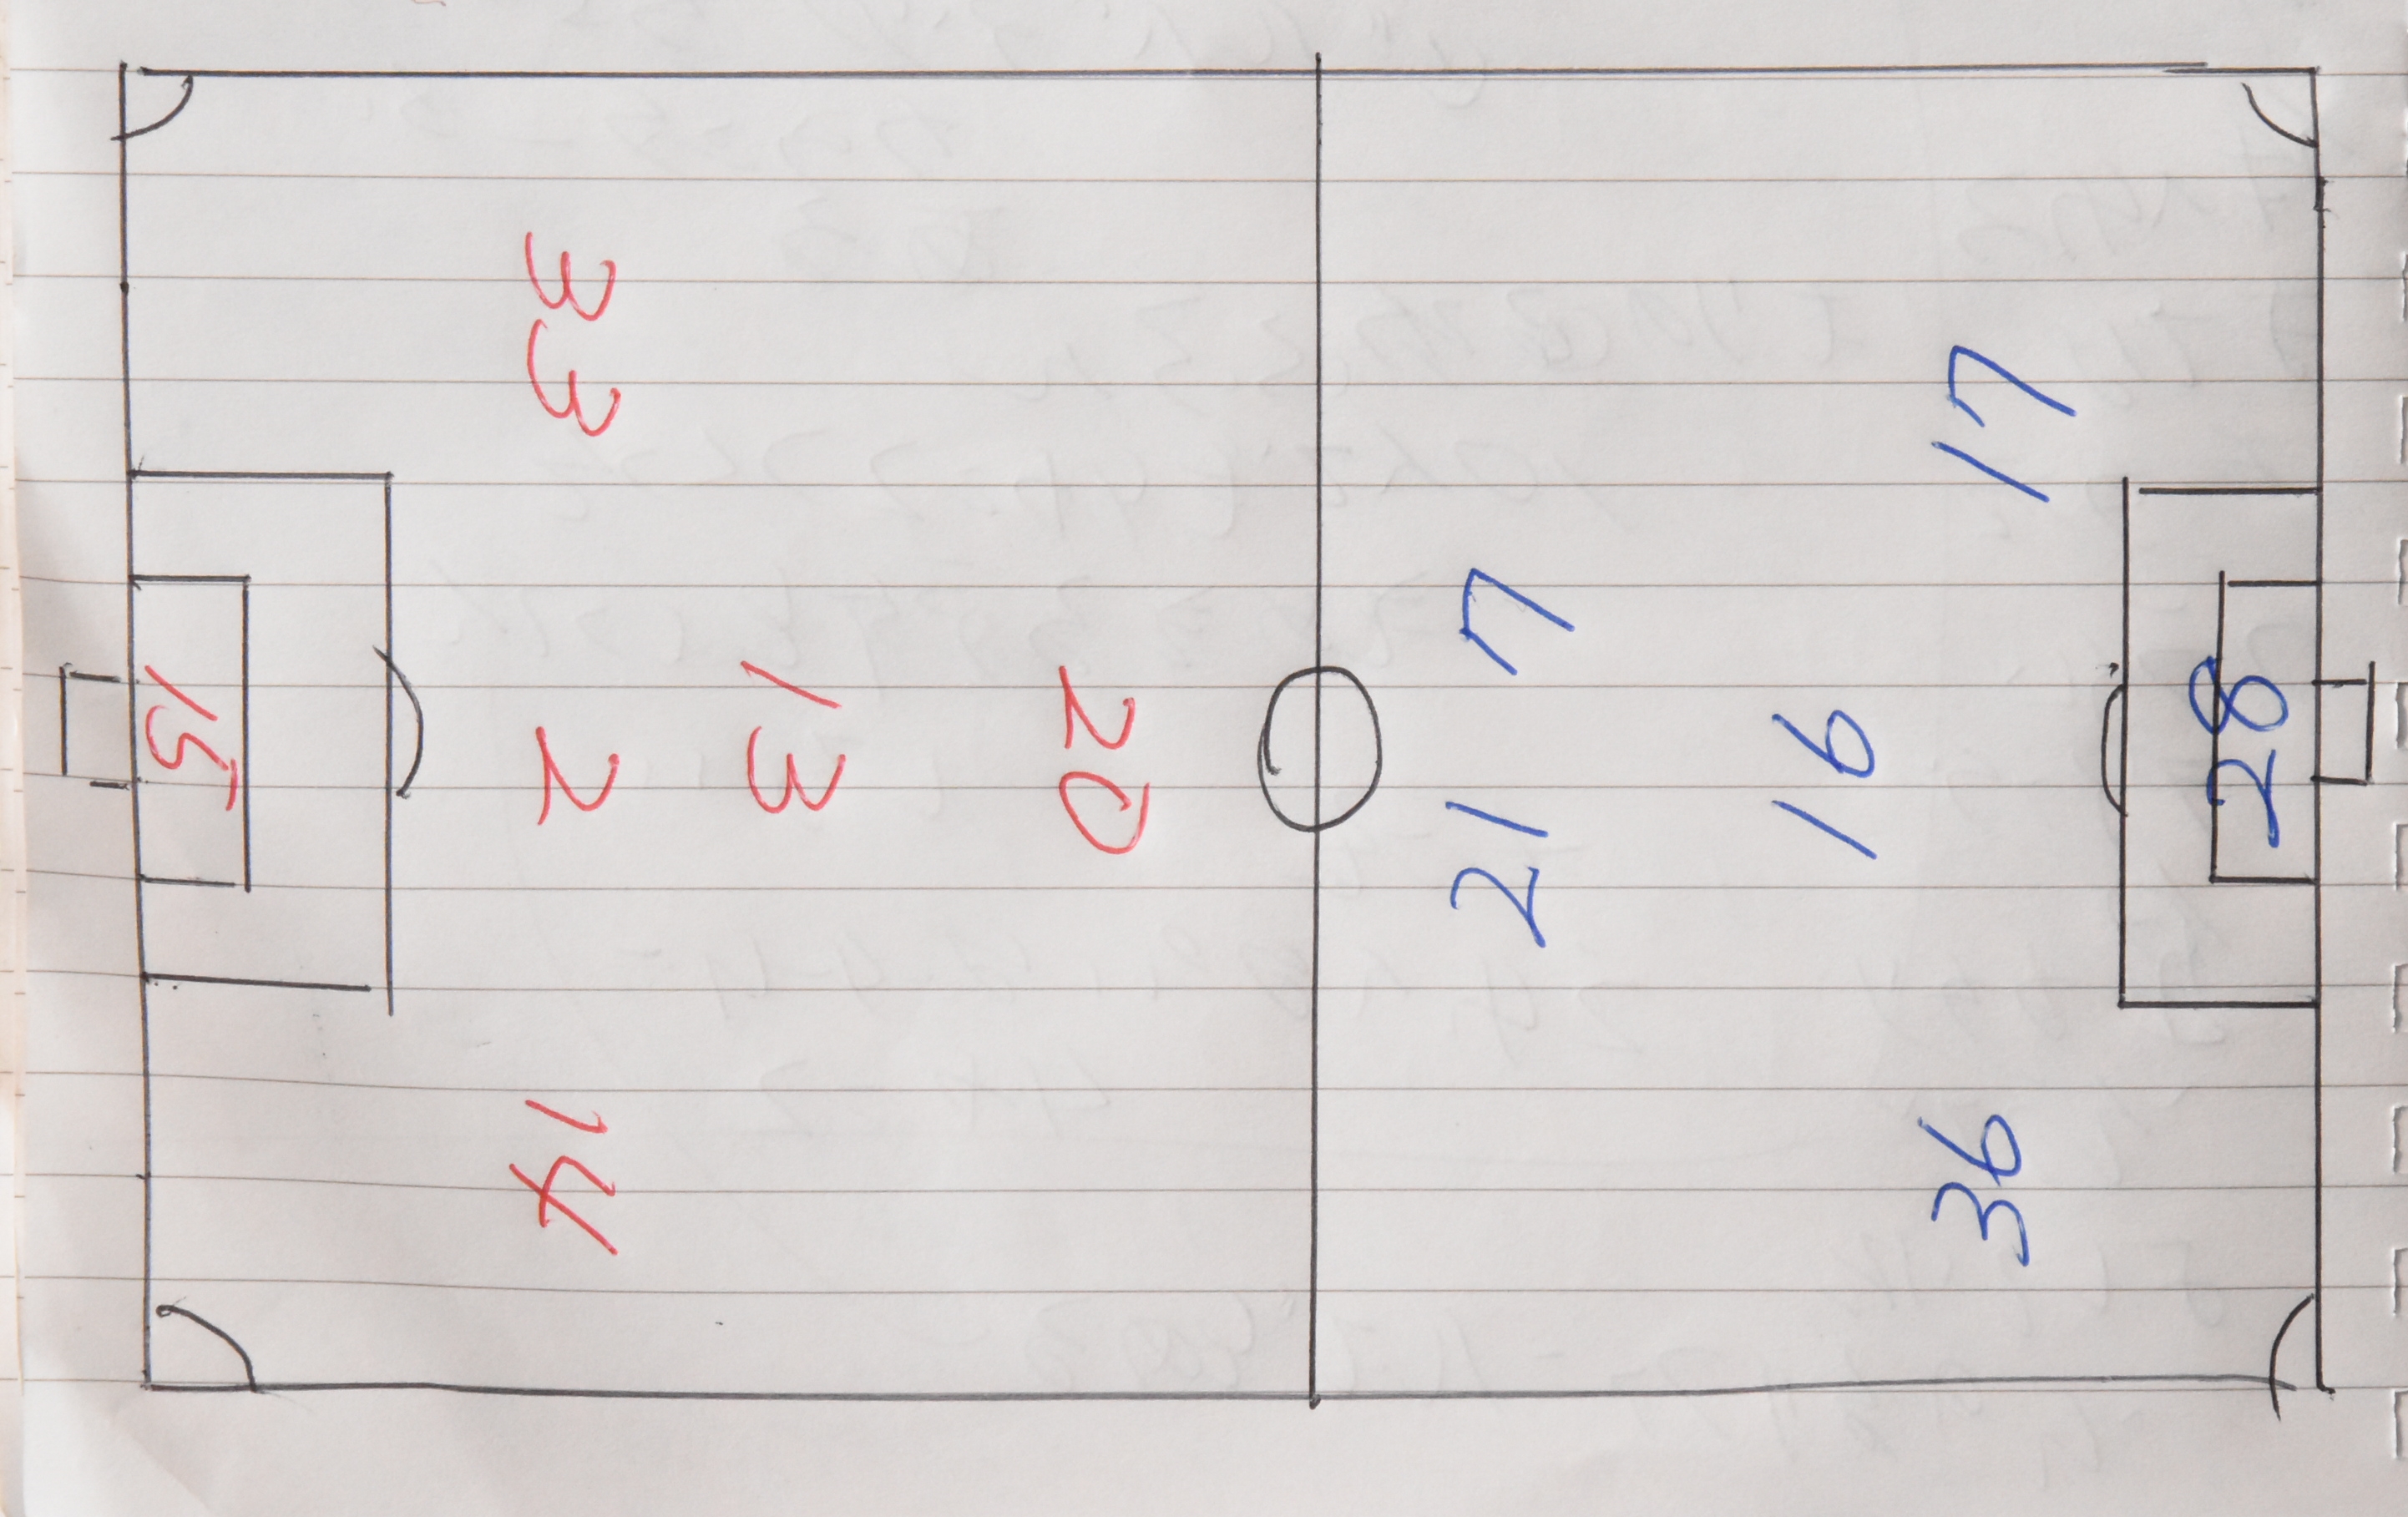 33
15
2
13
20
14
17
7
16
28
21
36